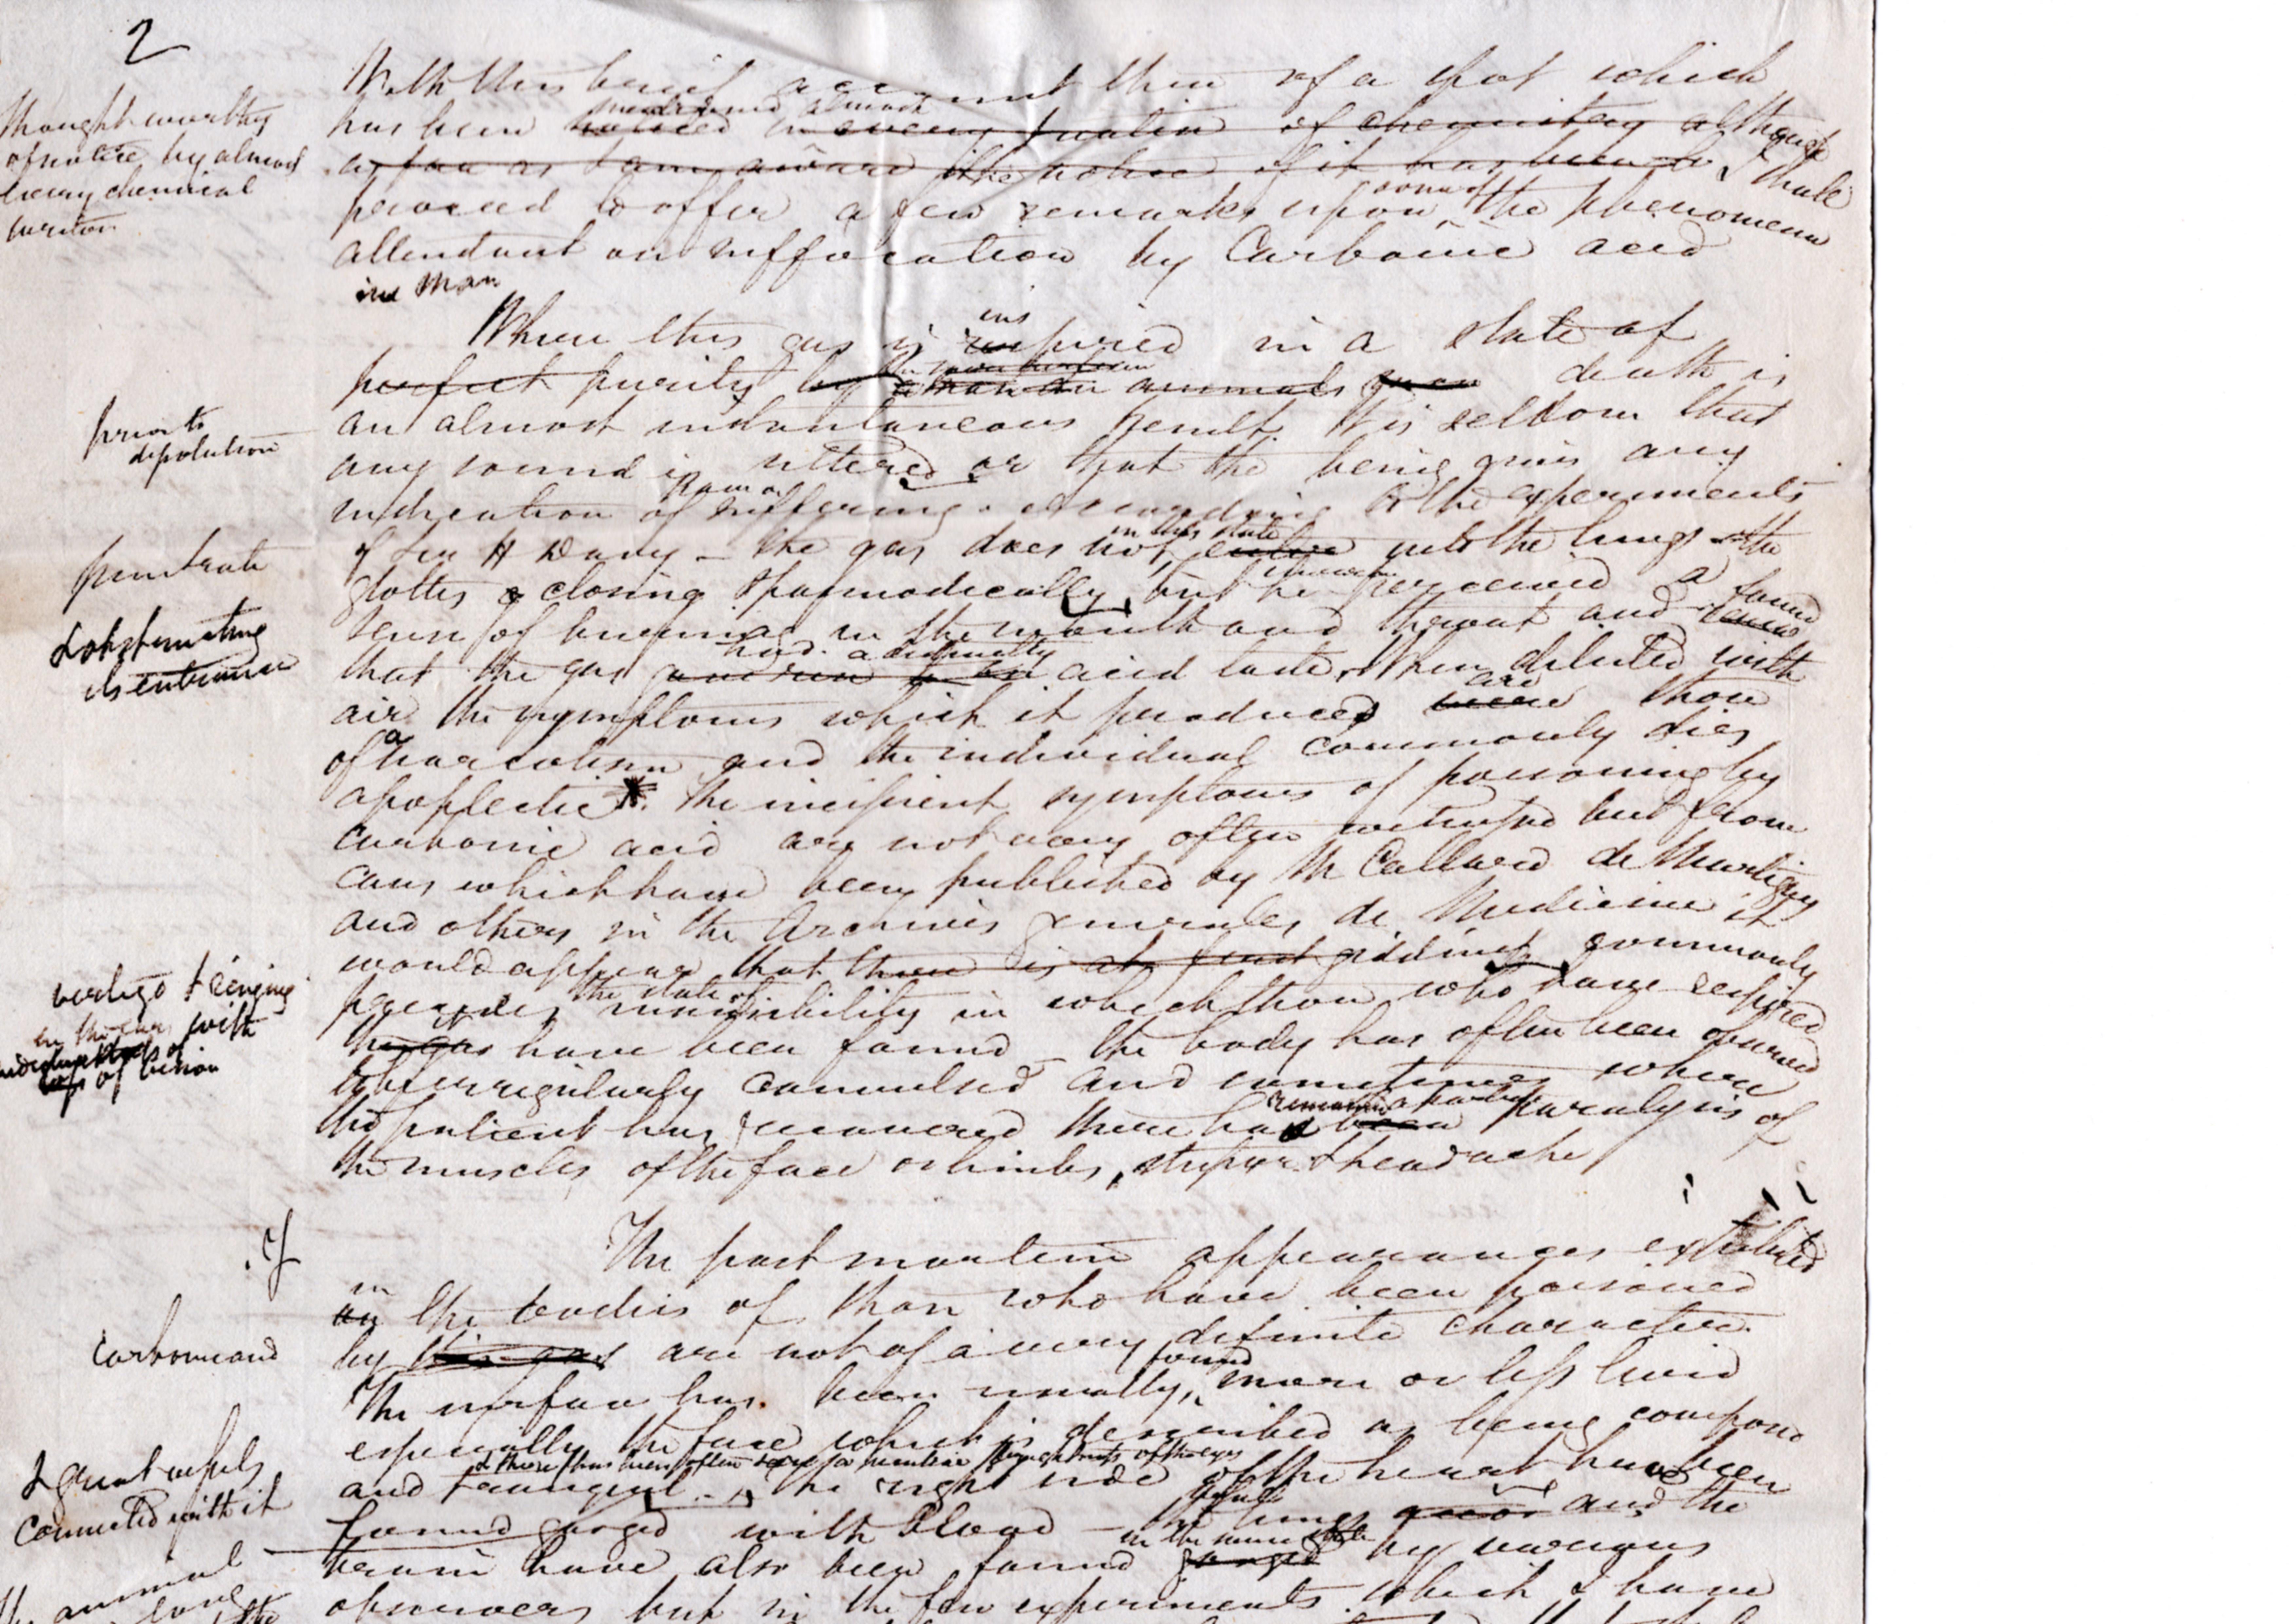 2
With this brief account then of a spot which
thought worthy
of notice by almost
every chemical
writer
mentioned almost
has been noticed in every treatise of chemistry although
as far as I am aware the notice of it has been so I shall
proceed to offer a few remarks upon some of the phenomena
attendant on suffocation by Carbonic acid
in Man
When this gas is inspired in a state of
perfect purity by animals death is
prior to
dissolution
an almost instantaneous result. It is seldom that
any sound is uttered or that the being gives any
indication of pain or suffering. According to the experiments
penetrate
of Sir H Davy – the gas does not in this state enter into the lungs – the
glottis closing spasmodically, but he perceived a
& obstructing
its entrance
sense of burning in the mouth and throat and found
that the gas had additionally acid taste. When diluted with
air the symptoms which it produces are those
of narcotism and the individual commonly dies
apoplectic. The incipient symptoms of poisoning by
carbonic acid are not very often witnessed but from
cases which have been published by M Collard de Martigny
and others in the Archives generales de Medicine it
would appear that there is at first giddiness commonly
vertigo & ringing
in the ears with
loss of vision
precedes the state of insensibility in which those who have respired
the gas have been found – the body has often been observed
to be irregularly convulsed and sometimes where
the patient has recovered there has remained a partial paralysis of
the muscles of the face or limbs, stupor & headache
The post mortem appearances exhibited
in the bodies of those who have been poisoned
carbonic acid
by this gas are not of a very definite character.
The surface has been usually found more or less livid
especially the face which is described as being composed
& there has been often seen a peculiar brightness of the eyes
and tranquil – the right side of the heart has been
& great vessels
connected with it
found gorged with blood – the lungs and the
in the same state
brain have also been found gorged by various
animal
observers but in the few experiments which I have